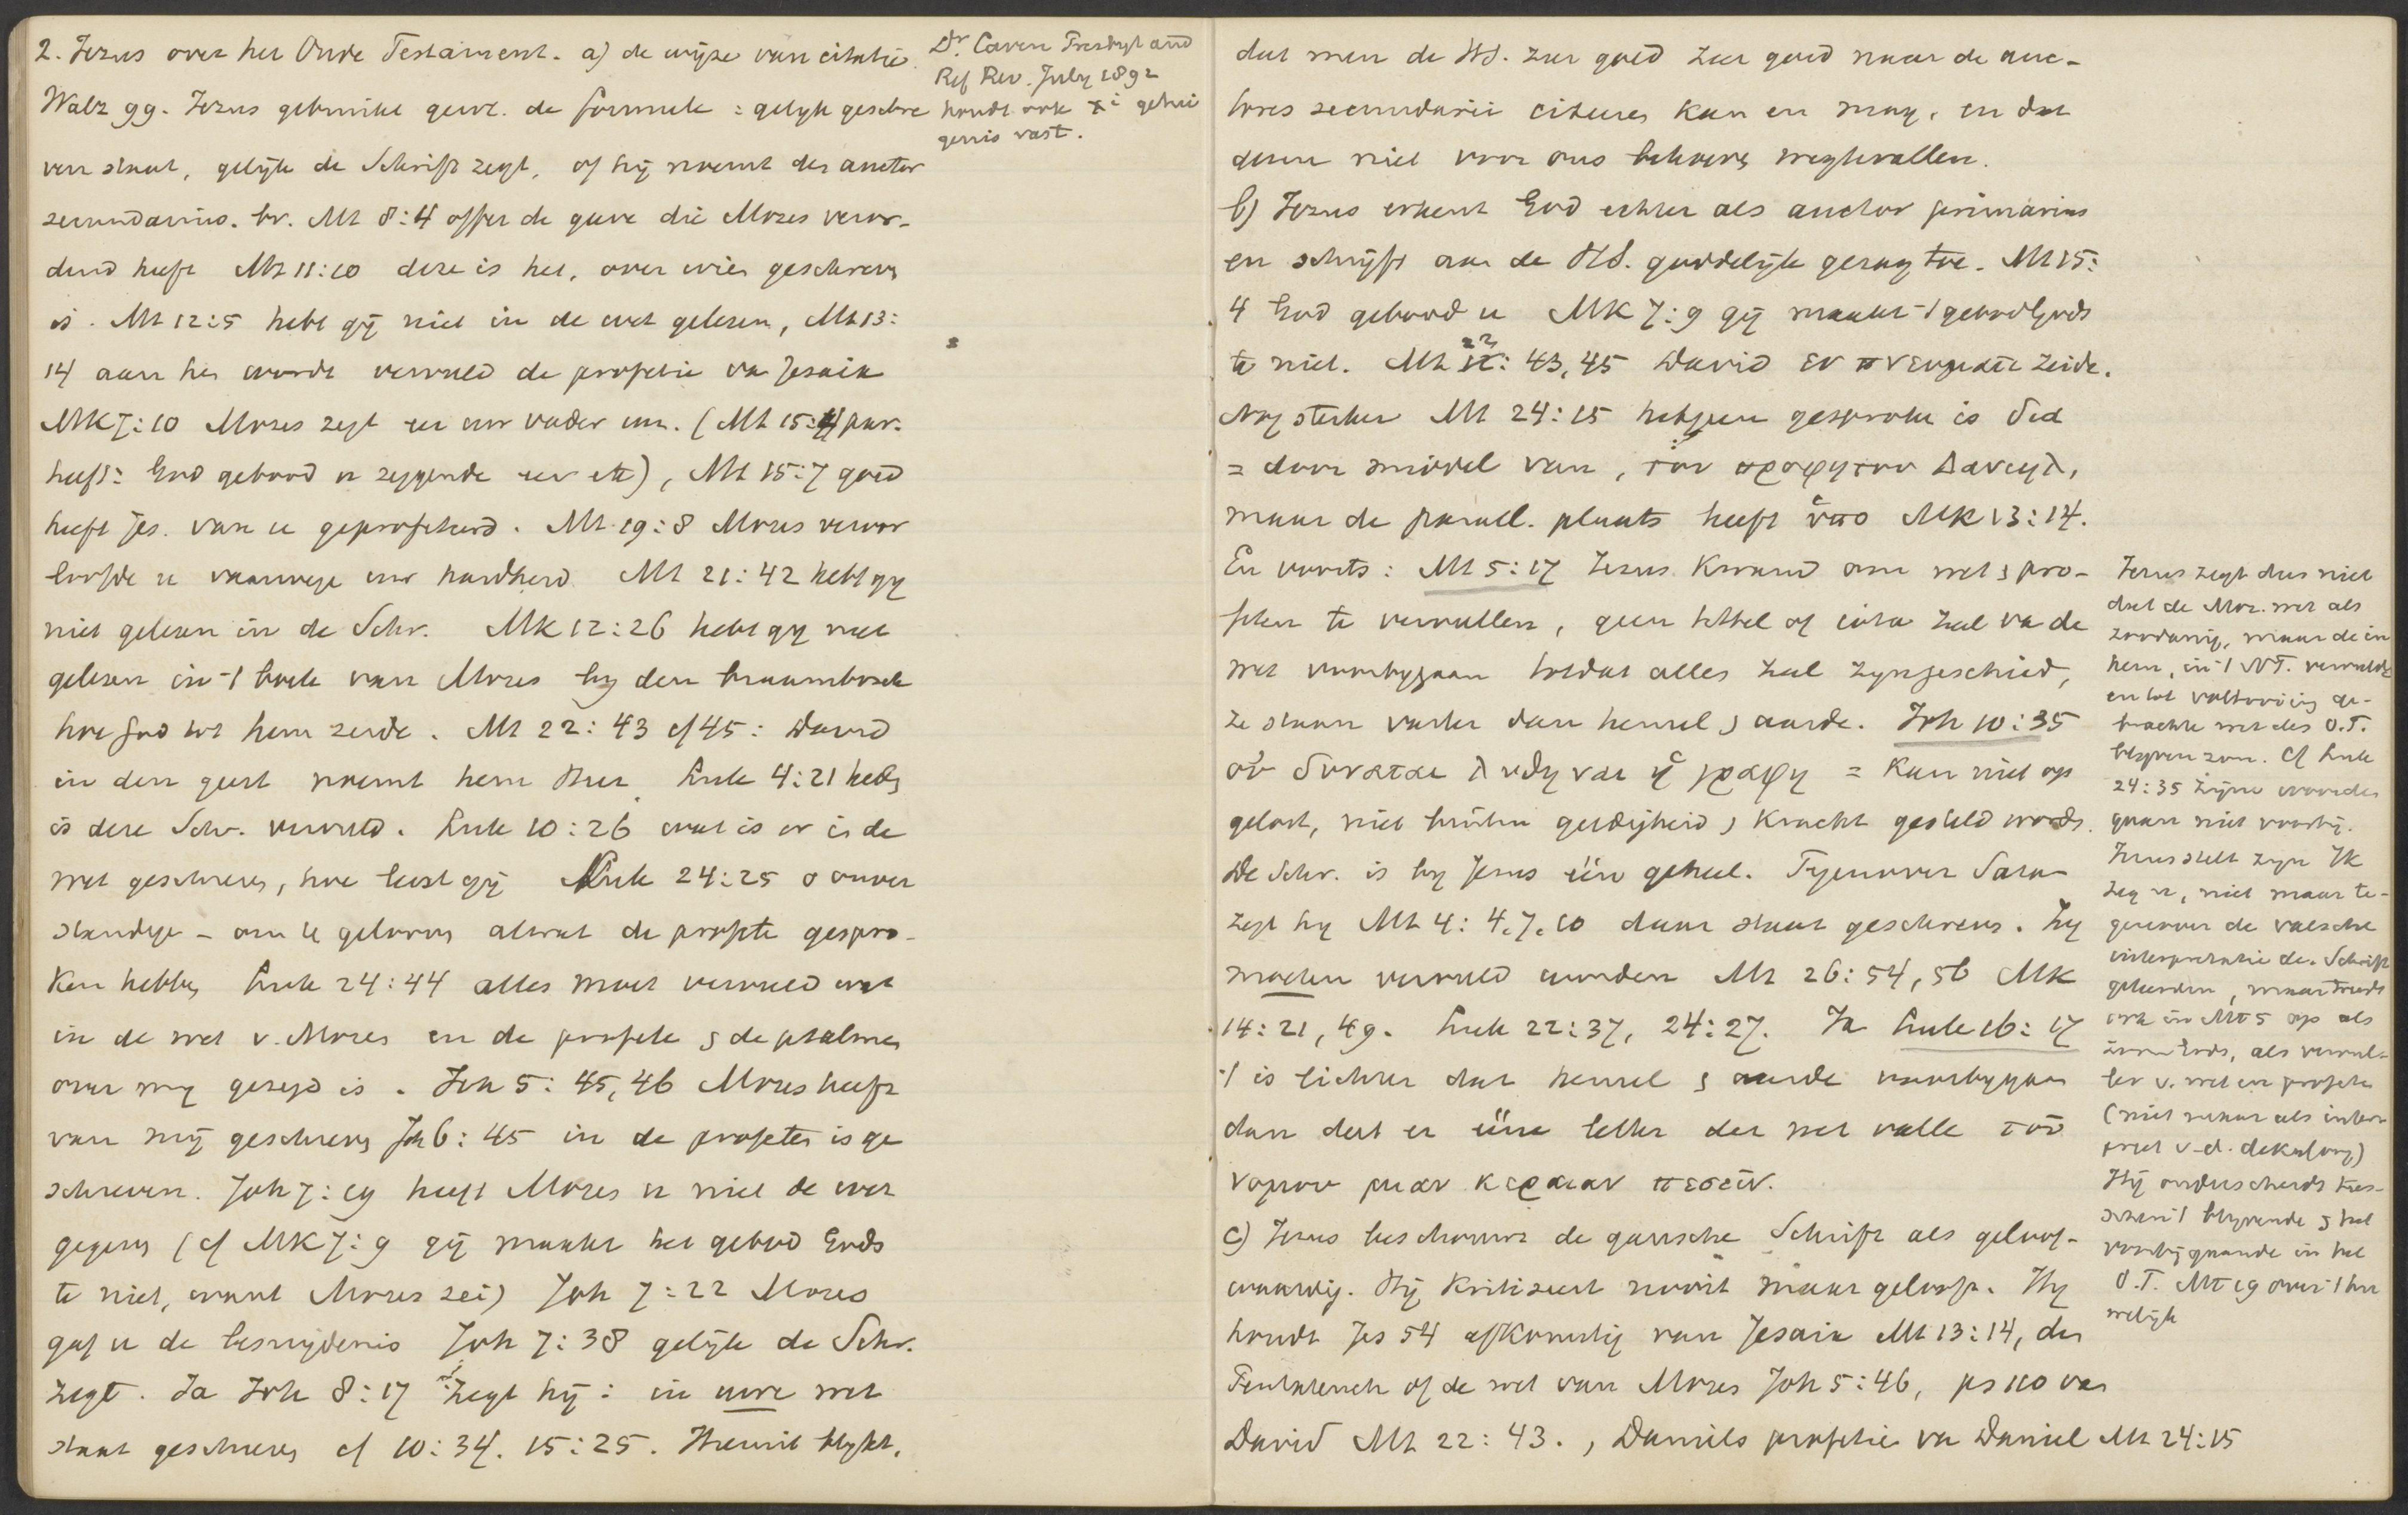 2. Jezus over het Oude Testament. a) de wijze van citatie.
Walz 99. Jezus gebruikt gew. de formule: gelijk geschre
ven staat, gelijk de Schrift zegt, of hij noemt den auctor
secundarius. bv. Mt 8:4 offer de gave die Mozes veror-
dend heeft Mt 11:10 deze is het, over wien geschreven
is. Mt 12:5 hebt gij niet in de wet gelezen, Mt 13:
14 aan hen wordt vervuld de profetie van Jesaia
MK 7:10 Mozes zegt eer uw vader enz. (Mt 15:4 par.
heeft: God gebood u zeggende eer etc), Mt 15:7 goed
heeft Jes. van u geprofeteerd. Mt 19:8 Mozes veroor
loofde u vanwege uw hardheid Mt 21:42 hebt gy
niet gelezen in de Schr. MK 12:26 hebt gy niet
gelezen in 't boek van Mozes by den braambosch
hoe God tot hem zeide. Mt 22:43 cf 45: David
in den geest noemt hem Heer. Luk 4:21 heden
is deze Schr. vervuld. Luk 10:26 wat is er in de
wet geschreven, hoe leest gij Luk 24:25 o onver
standige - om te geloven alwat de profeten gespro-
ken hebben Luk 24:44 alles moet vervuld wat
in de wet v. Mozes en de profeten & de psalmen
over my gezegd is. Joh 5:45,46 Mozes heeft
van mij geschreven Joh 6:45 in de profeten is ge
schreven. Joh 7:19 heeft Mozes u niet de wet
gegeven (cf MK 7:9 gij maakt het gebod Gods
te niet, want Mozes zei) Joh 7:22 Mozes
gaf u de besnijdenis Joh 7:38 gelijk de Schr.
zegt. Ja Joh 8:17 zegt hij: in uwe wet
staat geschreven cf 10:34. 15:25. Hieruit blykt,
Dr. Caven Presbyt and
Ref Rev. July 1892
houdt ook getui
genis vast.
dat men de HS. zeer goed zeer goed naar de auc-
tores secundarii citeeren kan en mag, en dat
deze niet voor ons behoeven wegtevallen.
b) Jezus erkent God echter als auctor primarius
en schrijft aan de HS. goddelijk gezag toe. Mt 15:
4 God gebood u MK 7:9 gij maakt 't gebod Gods
te niet. Mt 22:43,45 David εν πνευματι zeide.
Nog sterker Mt 24:15 hetgeen gesproken is δια
= door middel van, του προφητου Δανιηλ,
maar de parall. plaats heeft ὑπο MK 13:14.
En voorts: Mt 5:17 Jezus kwam om wet & pro-
feten te vervullen, geen tittel of iota zal van de
wet voorbygaan totdat alles zal zyn geschied,
ze staan vaster dan hemel & aarde. Joh 10:35
οὐ δυναται λυθηναι ἡ γραφη = kan niet op
gelost, niet buiten geldigheid & kracht gesteld worden.
De Schr. is by Jezus één geheel. Tegenover Satan
zegt hy Mt 4:4.7.10 daar staat geschreven. Zy
moeten vervuld worden Mt 26:54,56 MK
14:21,49. Luk 22:37, 24:27. Ja Luk 16:17
't is lichter dat hemel & aarde voorbygaan
dan dat er ééne letter der wet valle του
νομου μιαν κεραιαν πεσειν.
c) Jezus beschouwt de gansche Schrift als geloof-
waardig. Hij kritiseert nooit maar gelooft. Hy
houdt Jes 54 afkomstig van Jesaia Mt 13:14, den
Pentateuch of de wet van Mozes Joh 5:46, ps 110 van
David Mt 22:43., Daniels profetie van Daniel Mt 24:15
Jezus zegt dus niet
dat de Moz. wet als
zoodanig, maar de in
hem, in 't NT. vervulde
en tot voltooiing ge-
brachte wet des O.T.
blyven zou. Cf Luk
24:35 Zijne woorden
gaan niet voorbij.
Jezus stelt zyn Ik
zeg u, niet maar te-
genover de valsche
interpretatie der Schrift
geleerden, maar treedt
ook in Mt 5 op als
Zoon Gods, als vervul-
ler v. wet en profeten
(niet maar als inter-
preet v.d. dekaloog)
Hij onderscheidt tus-
schen 't blyvende & het
voorbijgaande in het
O.T. Mt 19 over 't hu
welijk